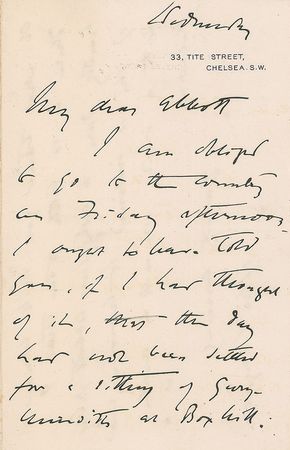 Wednesday
33, TITE STREET,
CHELSEA. S.W.
My dear Abbott
I am obliged
to go to the country
on Friday afternoon
I ought to have told
you, if I had thought
of it, that the day
had not been settled
for a sitting of George
Meredith at Box hill.